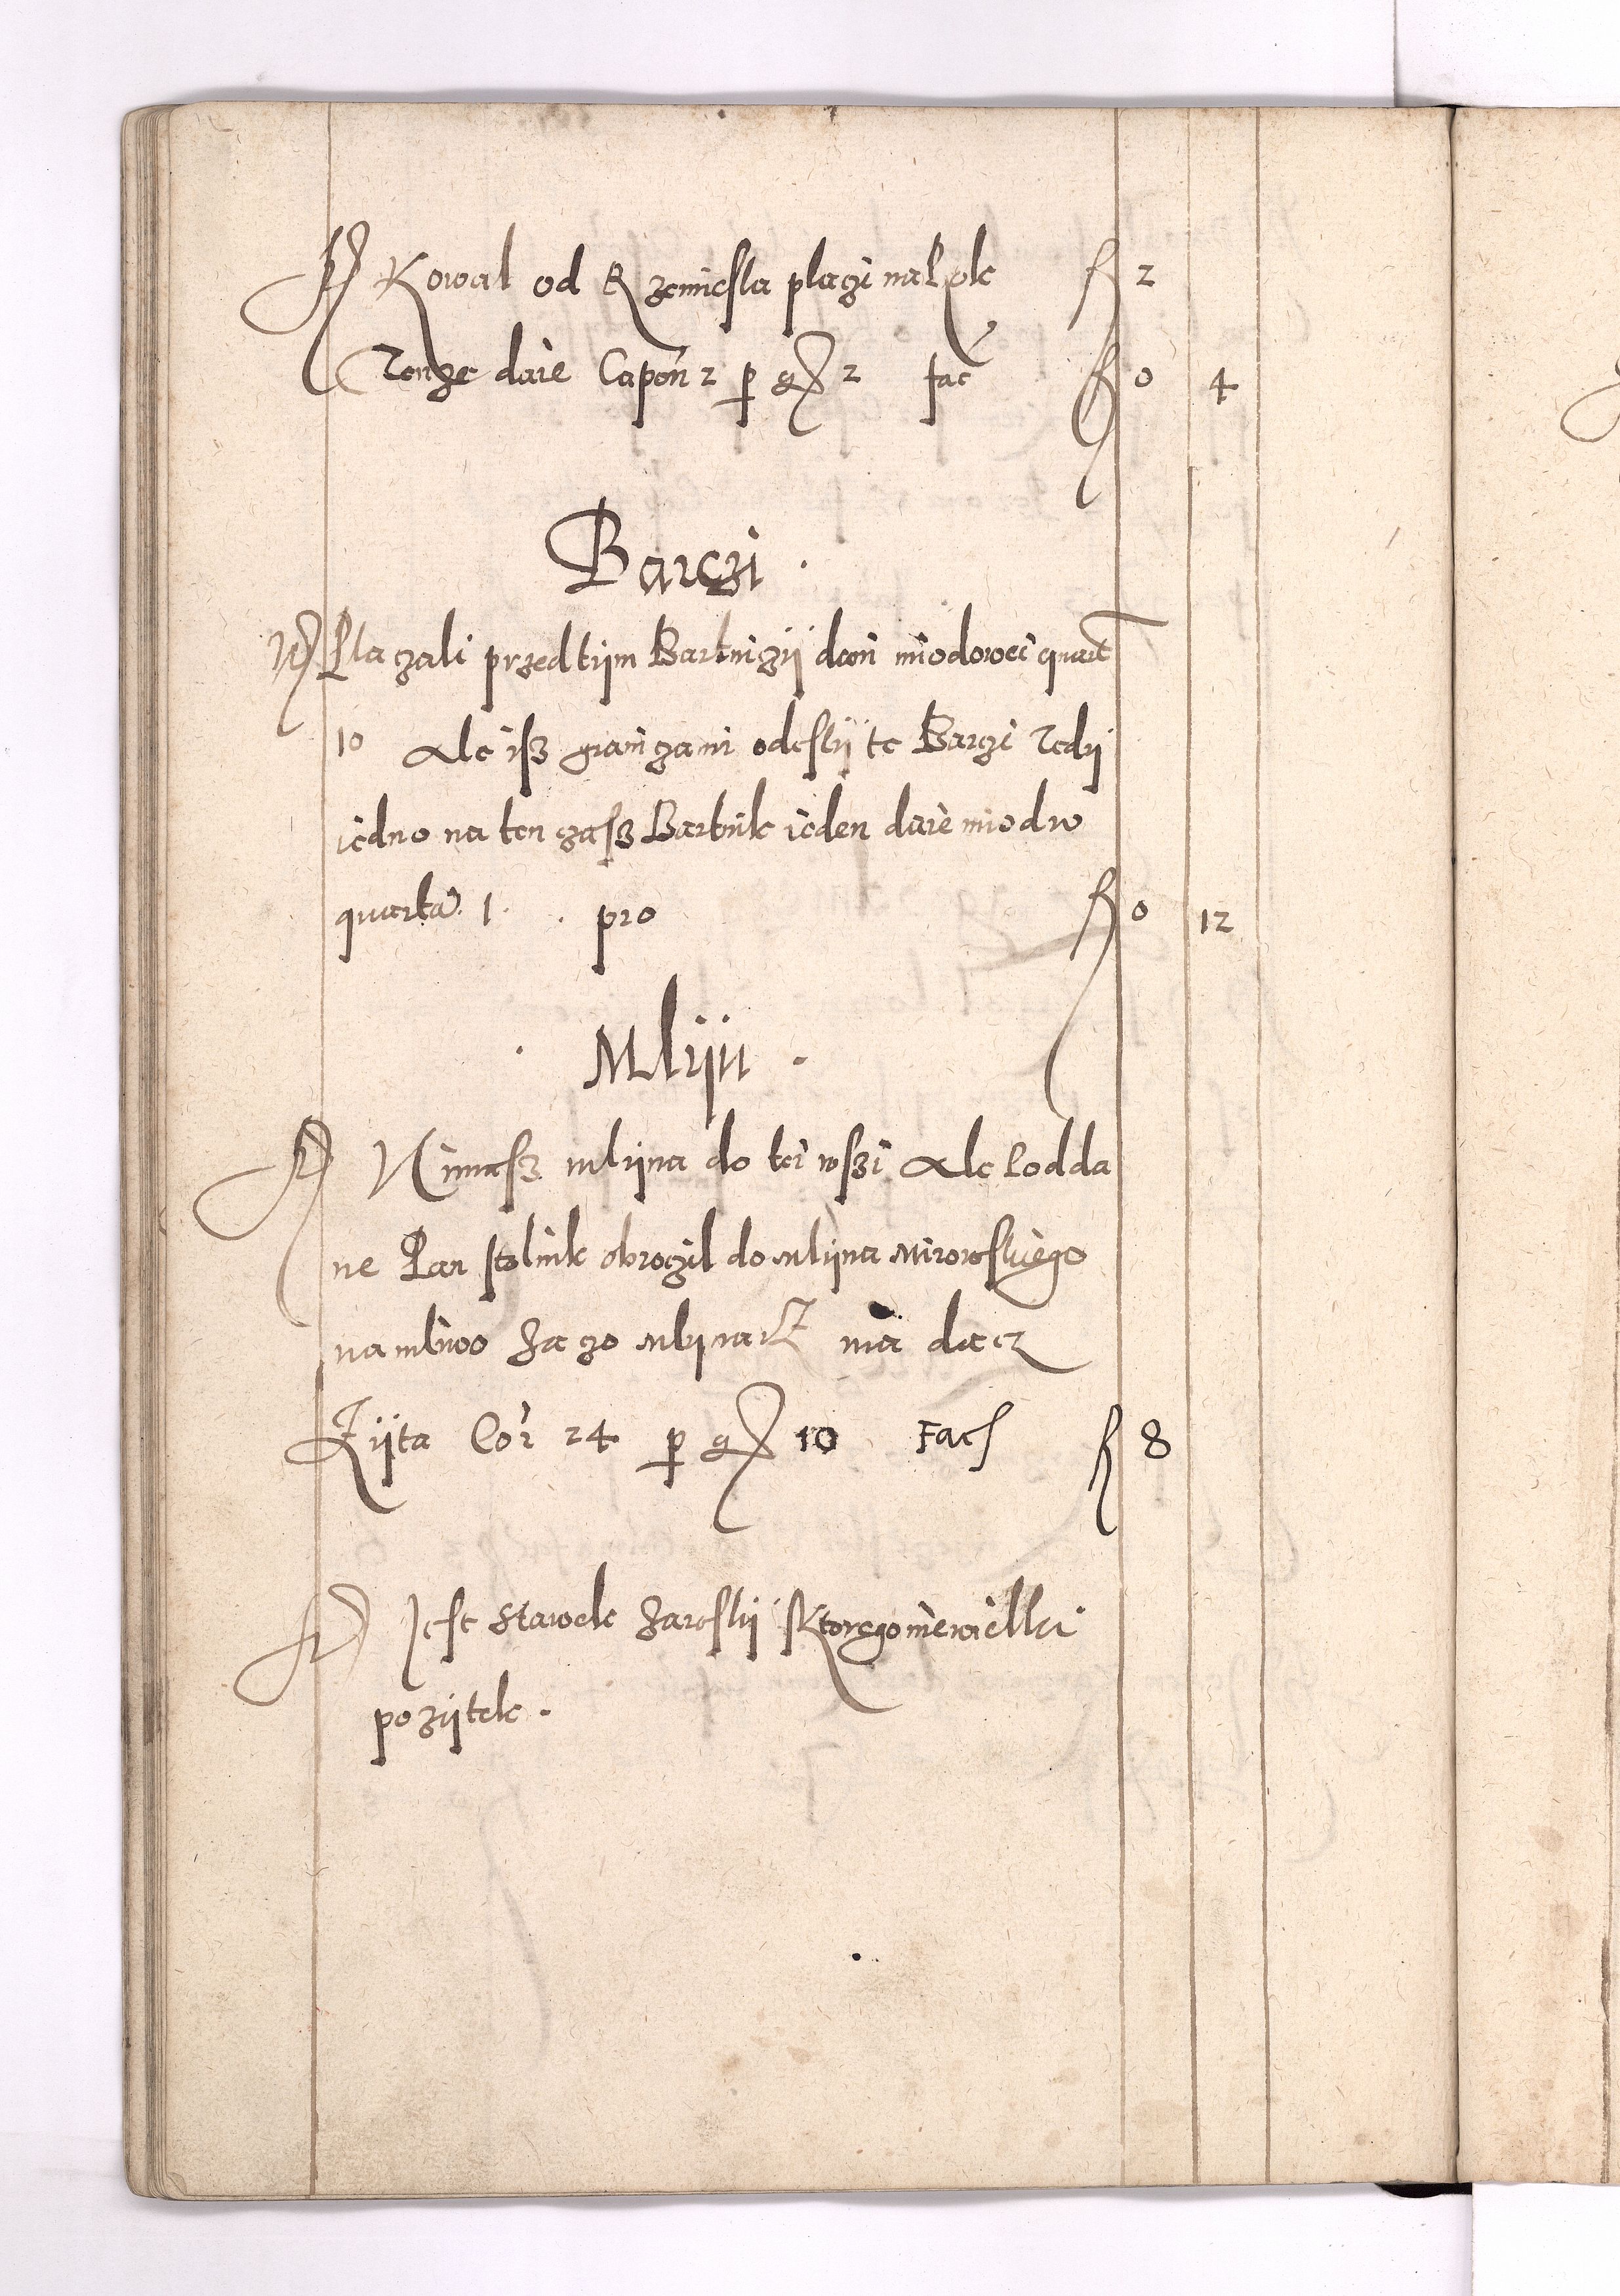 Kowal od Rzemiesla placzi na Rok fl 2
Tenze daie Capon 2 p gr 2 fac fl 0 4
Barczi .
Placzali przedtÿm Bartniczÿ dani miodowei quart
10 Ale isz graniczami odeslÿ te Barczi Tedÿ
iedno na ten czasz Bartnik ieden daie miodu
quarta 1 . pro fl 0 12
. Mlÿn .
Niemasz mlÿna do tei wszi Ale Podda
ne Pan stolnik obroczil do mlÿna Mirowskiego
na mliwo za czo mlÿnarz ma dacz
Zÿta Cor 24 p gr 10 Facs fl 8
Jest stawek zaroslÿ s Ktorego niewielki
pozÿtek .